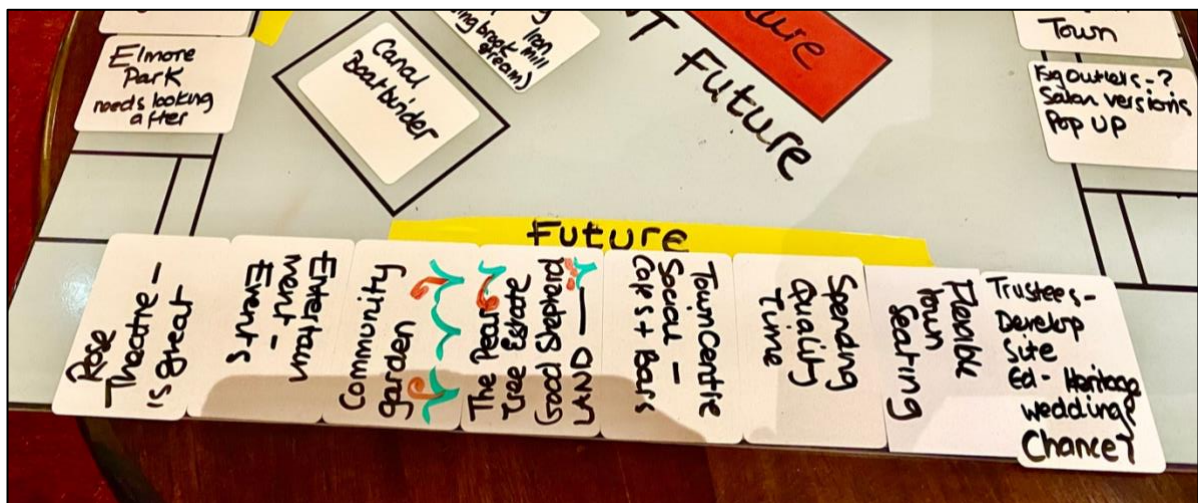 Elmore
Park
needs looking
after
Canal
Boatbuilder
Iron
mill
brook
dreams)
ure
T FUTURE
Town
Big outlets-?
Salon versions
Pop UP
Future
Rose
Theatre -
is great
Entertain
ment -
Events
Community
garden
The Pear
Tree Estate
Good Shepherd
LAND
Town Centre
Social -
Cafes + Bars
Spending
Quality
Time
Flexible
town
Seating
Trustees-
Develop
Site
Ed- Heritage
wedding
Chance?